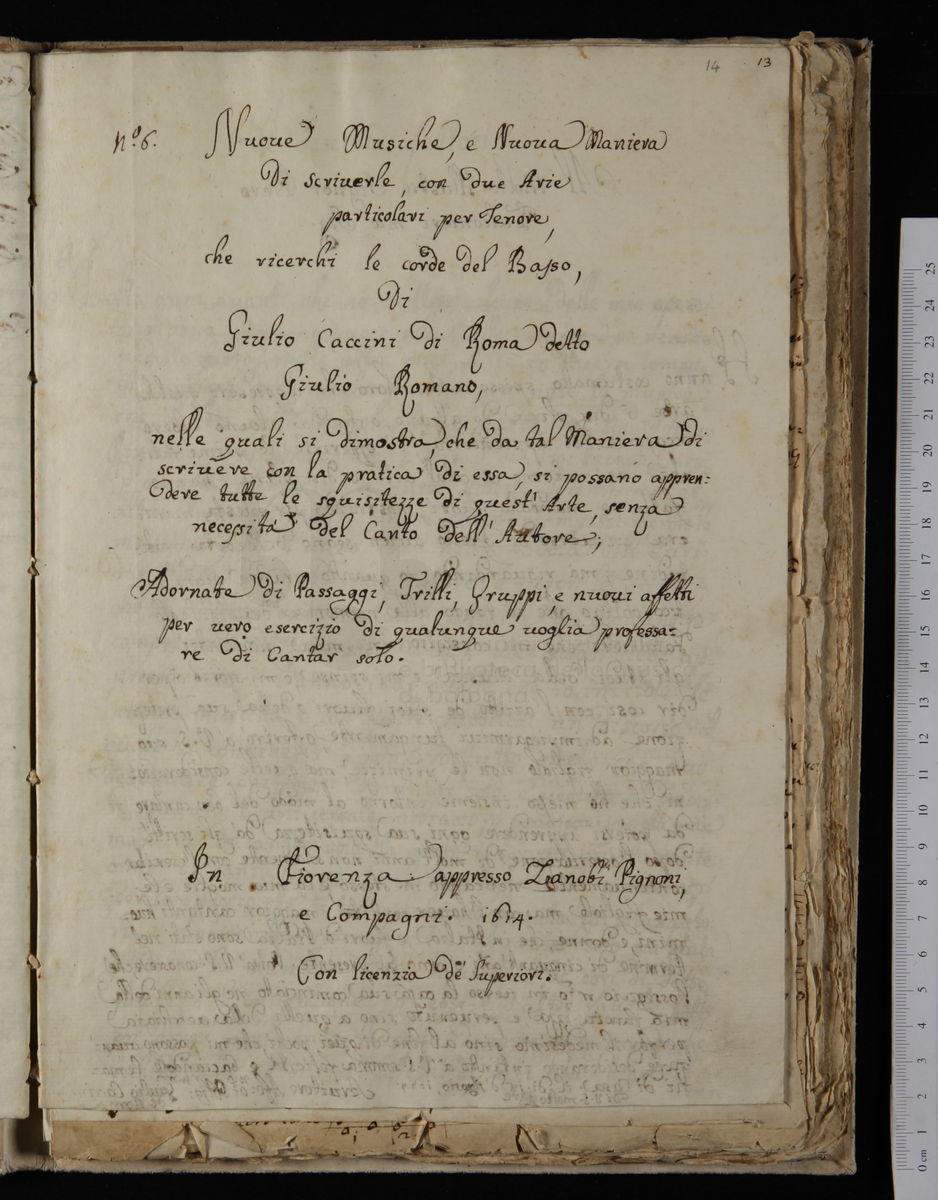 14 13
n.º 6. Nuove Musiche, e Nuova Maniera
Di scriverle, con due Arie
particolari per Tenore,
che ricerchi le corde del Basso,
Di
Giulio Caccini di Roma detto
Giulio Romano,
nelle quali si dimostra, che da tal Maniera di
scrivere con la pratica di essa, si possano appren:
dere tutte le squisitezze di quest' Arte, senza
necessità del Canto dell' Autore;
Adornate di Passaggi, Trilli, Gruppi, e nuovi affetti
per vero esercizio di qualunque voglia professa:
re di Cantar solo.
In Fiorenza appresso Zanobi Pignoni,
e Compagni. 1614.
Con licenzia de' Superiori.
0 cm 1 2 3 4 5 6 7 8 9 10 11 12 13 14 15 16 17 18 19 20 21 22 23 24 25